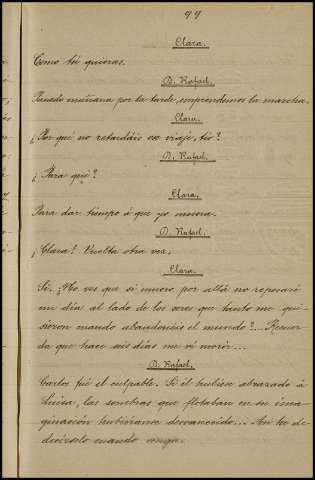 99
Clara.
Como tú quieras.
D. Rafael.
Pasado mañana por la tarde, emprendemos la marcha.
Clara.
¿Por qué no retardáis ese viaje, tío?
D. Rafael.
¿Para qué?
Clara.
Para dar tiempo á que yo muera.
D. Rafael.
¡Clara! Vuelta otra vez.
Clara.
Sí. ¿No ves que si muero por allá no reposaré
un día al lado de los seres que tanto me qui-
sieron cuando abandonéis el mundo?... Recuer-
da que hace seis días me ví morir...
D. Rafael.
Carlos fué el culpable. Si él hubiese abrazado á
Luisa, las sombras que flotaban en su ima-
ginación hubiéranse desvanecido... Así he de
decírselo cuando venga.